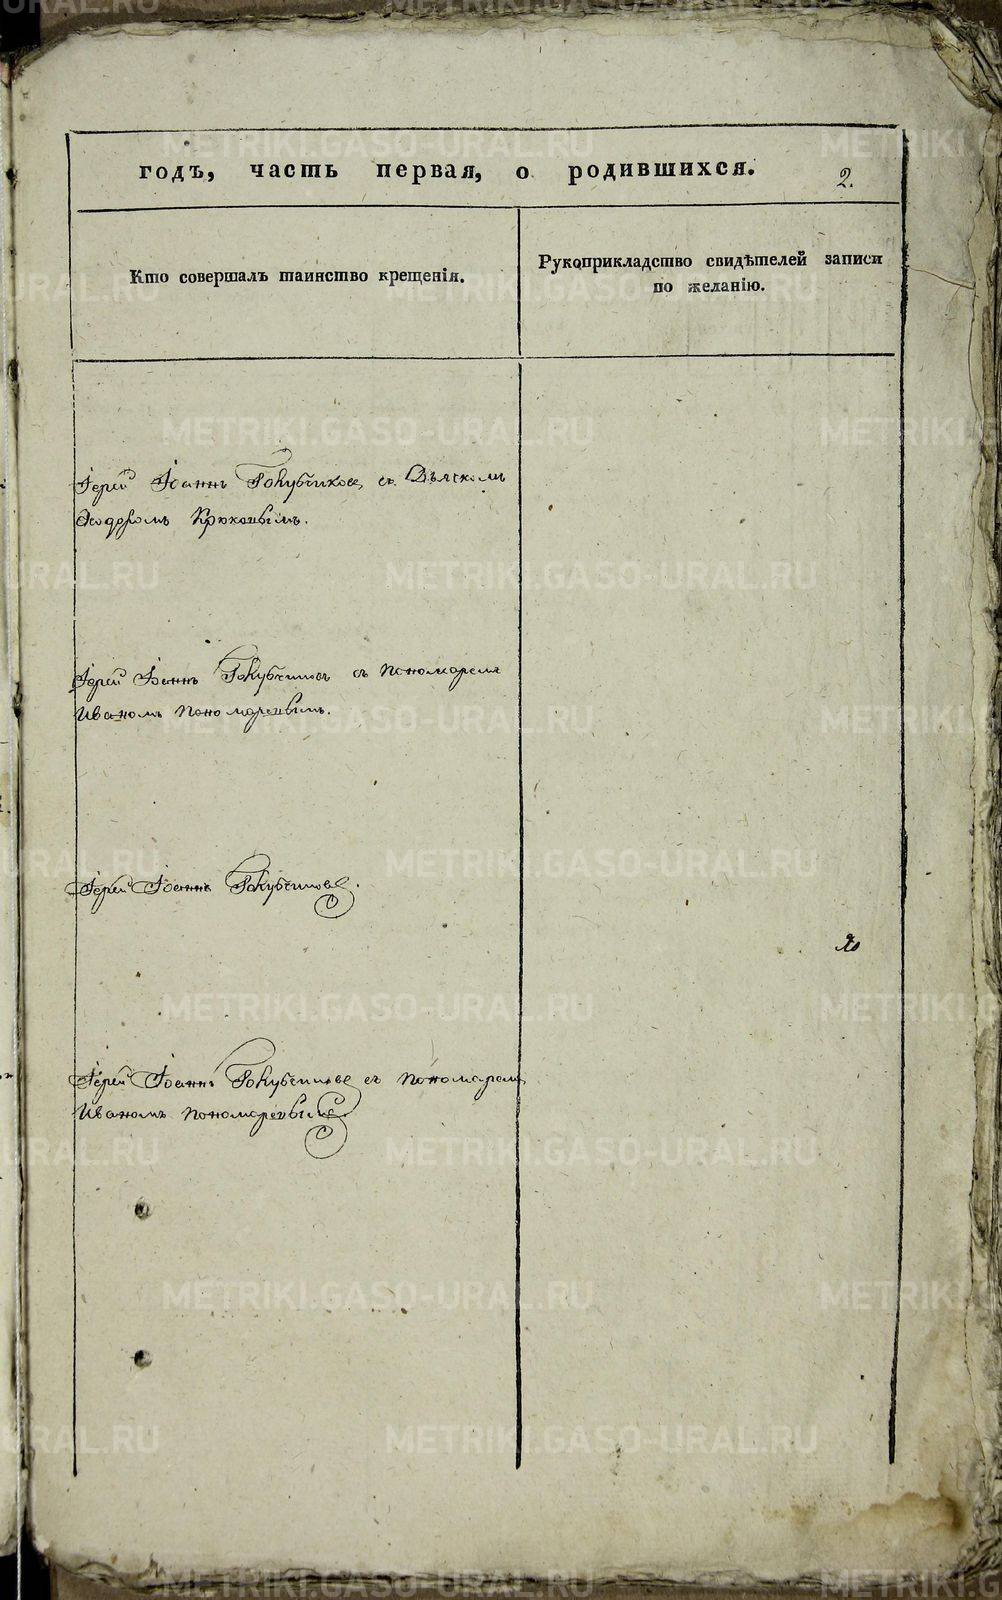 годъ, часть первая, о родившихся.
2.
Кто совершалъ таинство крещенія.
Рукоприкладство свидѣтелей записи
по желанію.
Іерей Іоаннъ Голубчиковъ, съ Дьячкомъ
Ѳеодоромъ Крюковымъ.
Іерей Іоаннъ Голубчиковъ съ пономаремъ
Иваномъ Пономаревымъ.
Іерей Іоаннъ Голубчиковъ.
Іерей Іоаннъ Голубчиковъ съ пономаремъ
Иваномъ Пономаревымъ.
METRIKI.GASO-URAL.RU